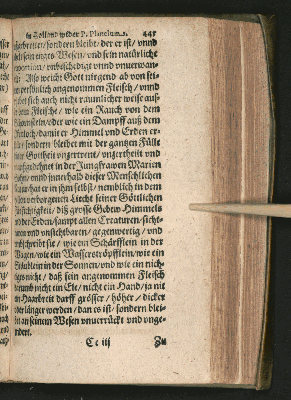 in Holland wider P. Plancium. 441
arbeitet / sondern bleibet / der er ist / vnnd
sein eygen Wesen / vnnd sein natürliche
vnbeschedigt vnnd vnuerwan-
Also weicht Gott nirgend ab von sei-
angenommen Fleisch / vnnd
sich auch nicht raumlicher weise auß
Fleische / wie ein Rauch von dem
oder wie ein Dampff auß dem
damit er Himmel vnd Erden er-
sondern bleibet mit der gantzen Fülle
Gottheit vngetrent / vngertheilt vnd
in der Jungfrawen Marien
vnnd innerhalb dieser Menschlichen
hat er in ihm selbst / nemblich in dem
verborgenen Liecht seiner Göttlichen
diß grosse Gebew Himmels
der Erden / sampt allen Creaturen / sicht-
vnd vnsichtbarten / gegenwertig / vnd
sie / wie ein Schärfflein in der
wie ein Wasserströpfflein / wie ein
in der Sonnen / vnd wie ein nich-
nichts / daß sein angenommen Fleisch
nicht ein Ele / nicht ein Hand / ja nit
Haarbreit darff grösser / höher / dicker
länger werden / dan es ist / sondern blei-
an seinem Wesen vnuerrückt vnd vnge-
dert.
Ee iij Zu